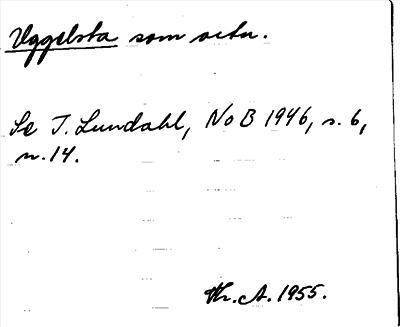 Uggelsta som ortn.
Se I. Lundahl, NoB 1946, s. 6,
n. 14.
Th. A. 1955.